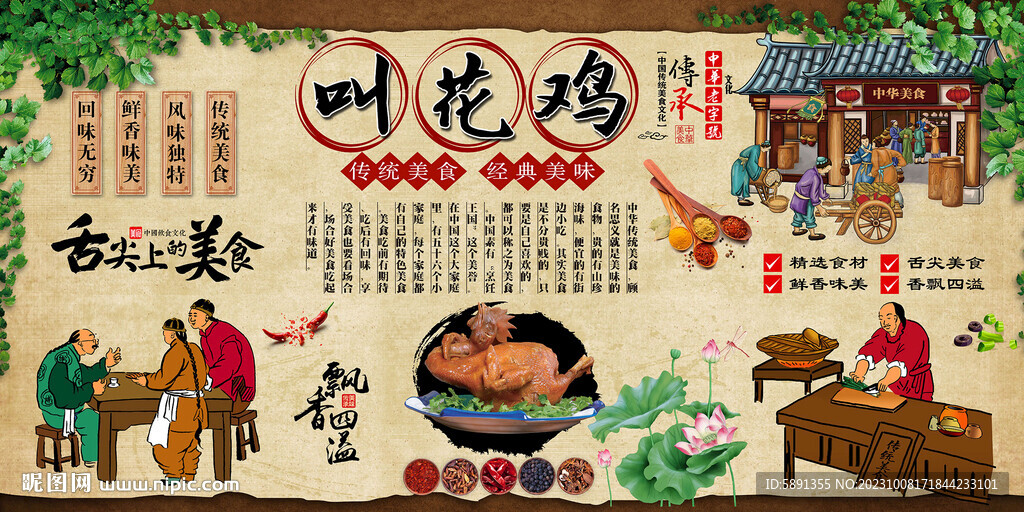 叫花鸡
传统美食 经典美味
【中国传统美食文化】
傳承
中華美食
中華老字號
文化
中华美食
传统美食
风味独特
鲜香味美
回味无穷
美食
中國飲食文化
舌尖上的美食
中华传统美食，顾
名思义就是美味的
食物，贵的有山珍
海味，便宜的有街
边小吃，其实美食
是不分贵贱的，只
要是自己喜欢的，
都可以称之为美食
。中国素有“烹饪
王国”这个美誉，
在中国这个大家庭
里，有五十六个小
家庭，每个家庭都
有自己的特色美食
。美食吃前有期待
、吃后有回味，享
受美食也要看场合
，场合好美食吃起
来才有味道。
精选食材 舌尖美食
鲜香味美 香飘四溢
飘香四溢
传统美
昵图网 www.nipic.com
ID:5891355 NO:20231008171844233101